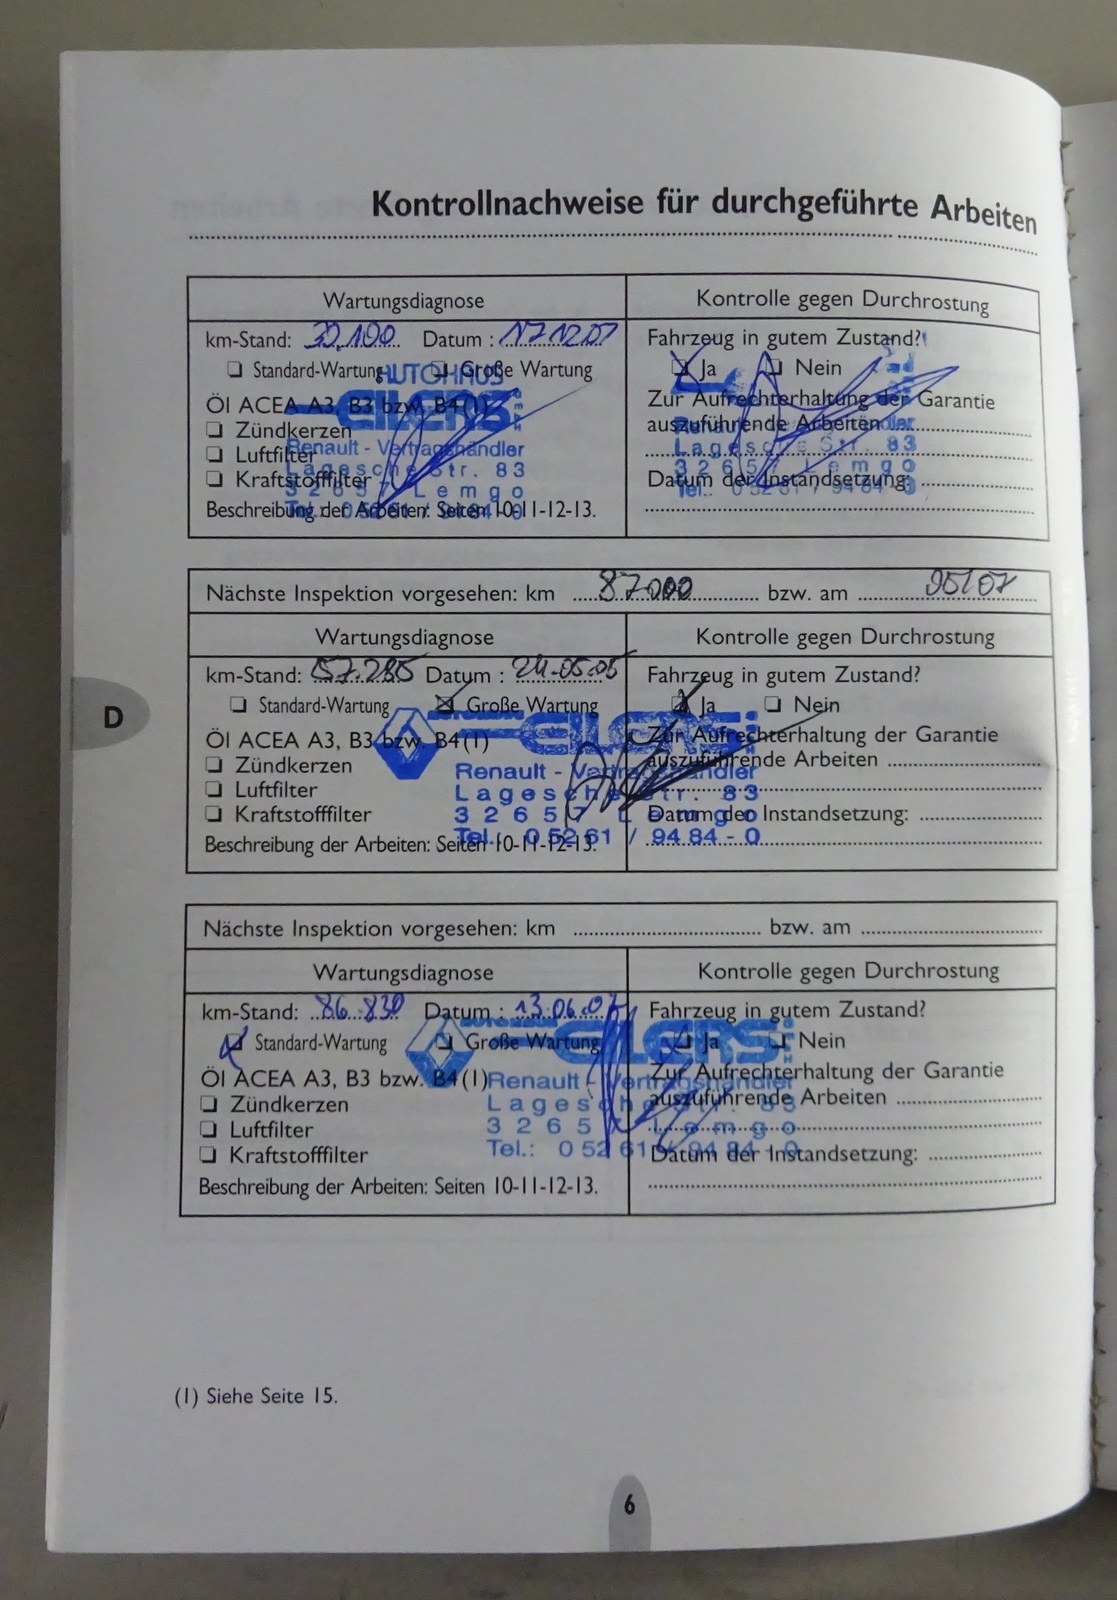 Kontrollnachweise für durchgeführte Arbeiten
Wartungsdiagnose
Kontrolle gegen Durchrostung
km-Stand: Datum : 17 12 01
Fahrzeug in gutem Zustand?
Standard-Wartung Große Wartung
Ja Nein
Öl ACEA A3, B3 bzw. B4(1)
Zündkerzen
Luftfilter
Kraftstofffilter
Beschreibung der Arbeiten: Seiten 10-11-12-13.
Zur Aufrechterhaltung der Garantie
auszuführende Arbeiten
Datum der Instandsetzung:
AUTOHAUS
EILERS
Renault - Vertragshändler
Lagesche Str. 83
32657 Lemgo
Tel.: 0 52 61 / 94 84 - 0
Lagesche Str. 83
32657 Lemgo
Tel.: 0 52 61 / 94 84 - 0
Nächste Inspektion vorgesehen: km 87000 bzw. am 05/07
Wartungsdiagnose
Kontrolle gegen Durchrostung
km-Stand: 57.285 Datum : 24.05.05
Fahrzeug in gutem Zustand?
Standard-Wartung Große Wartung
Ja Nein
Öl ACEA A3, B3 bzw. B4(1)
Zündkerzen
Luftfilter
Kraftstofffilter
Beschreibung der Arbeiten: Seiten 10-11-12-13.
Zur Aufrechterhaltung der Garantie
auszuführende Arbeiten
Datum der Instandsetzung:
AUTOHAUS EILERS
Renault - Vertragshändler
Lagesche Str. 83
32657 Lemgo
Tel.: 0 52 61 / 94 84 - 0
Nächste Inspektion vorgesehen: km bzw. am
Wartungsdiagnose
Kontrolle gegen Durchrostung
km-Stand: 86.830 Datum : 13.06.07
Fahrzeug in gutem Zustand?
Standard-Wartung Große Wartung
Ja Nein
Öl ACEA A3, B3 bzw. B4(1)
Zündkerzen
Luftfilter
Kraftstofffilter
Beschreibung der Arbeiten: Seiten 10-11-12-13.
Zur Aufrechterhaltung der Garantie
auszuführende Arbeiten
Datum der Instandsetzung:
AUTOHAUS EILERS
Renault - Vertragshändler
Lagesche Str. 83
32657 Lemgo
Tel.: 0 52 61 / 94 84 - 0
D
(1) Siehe Seite 15.
6